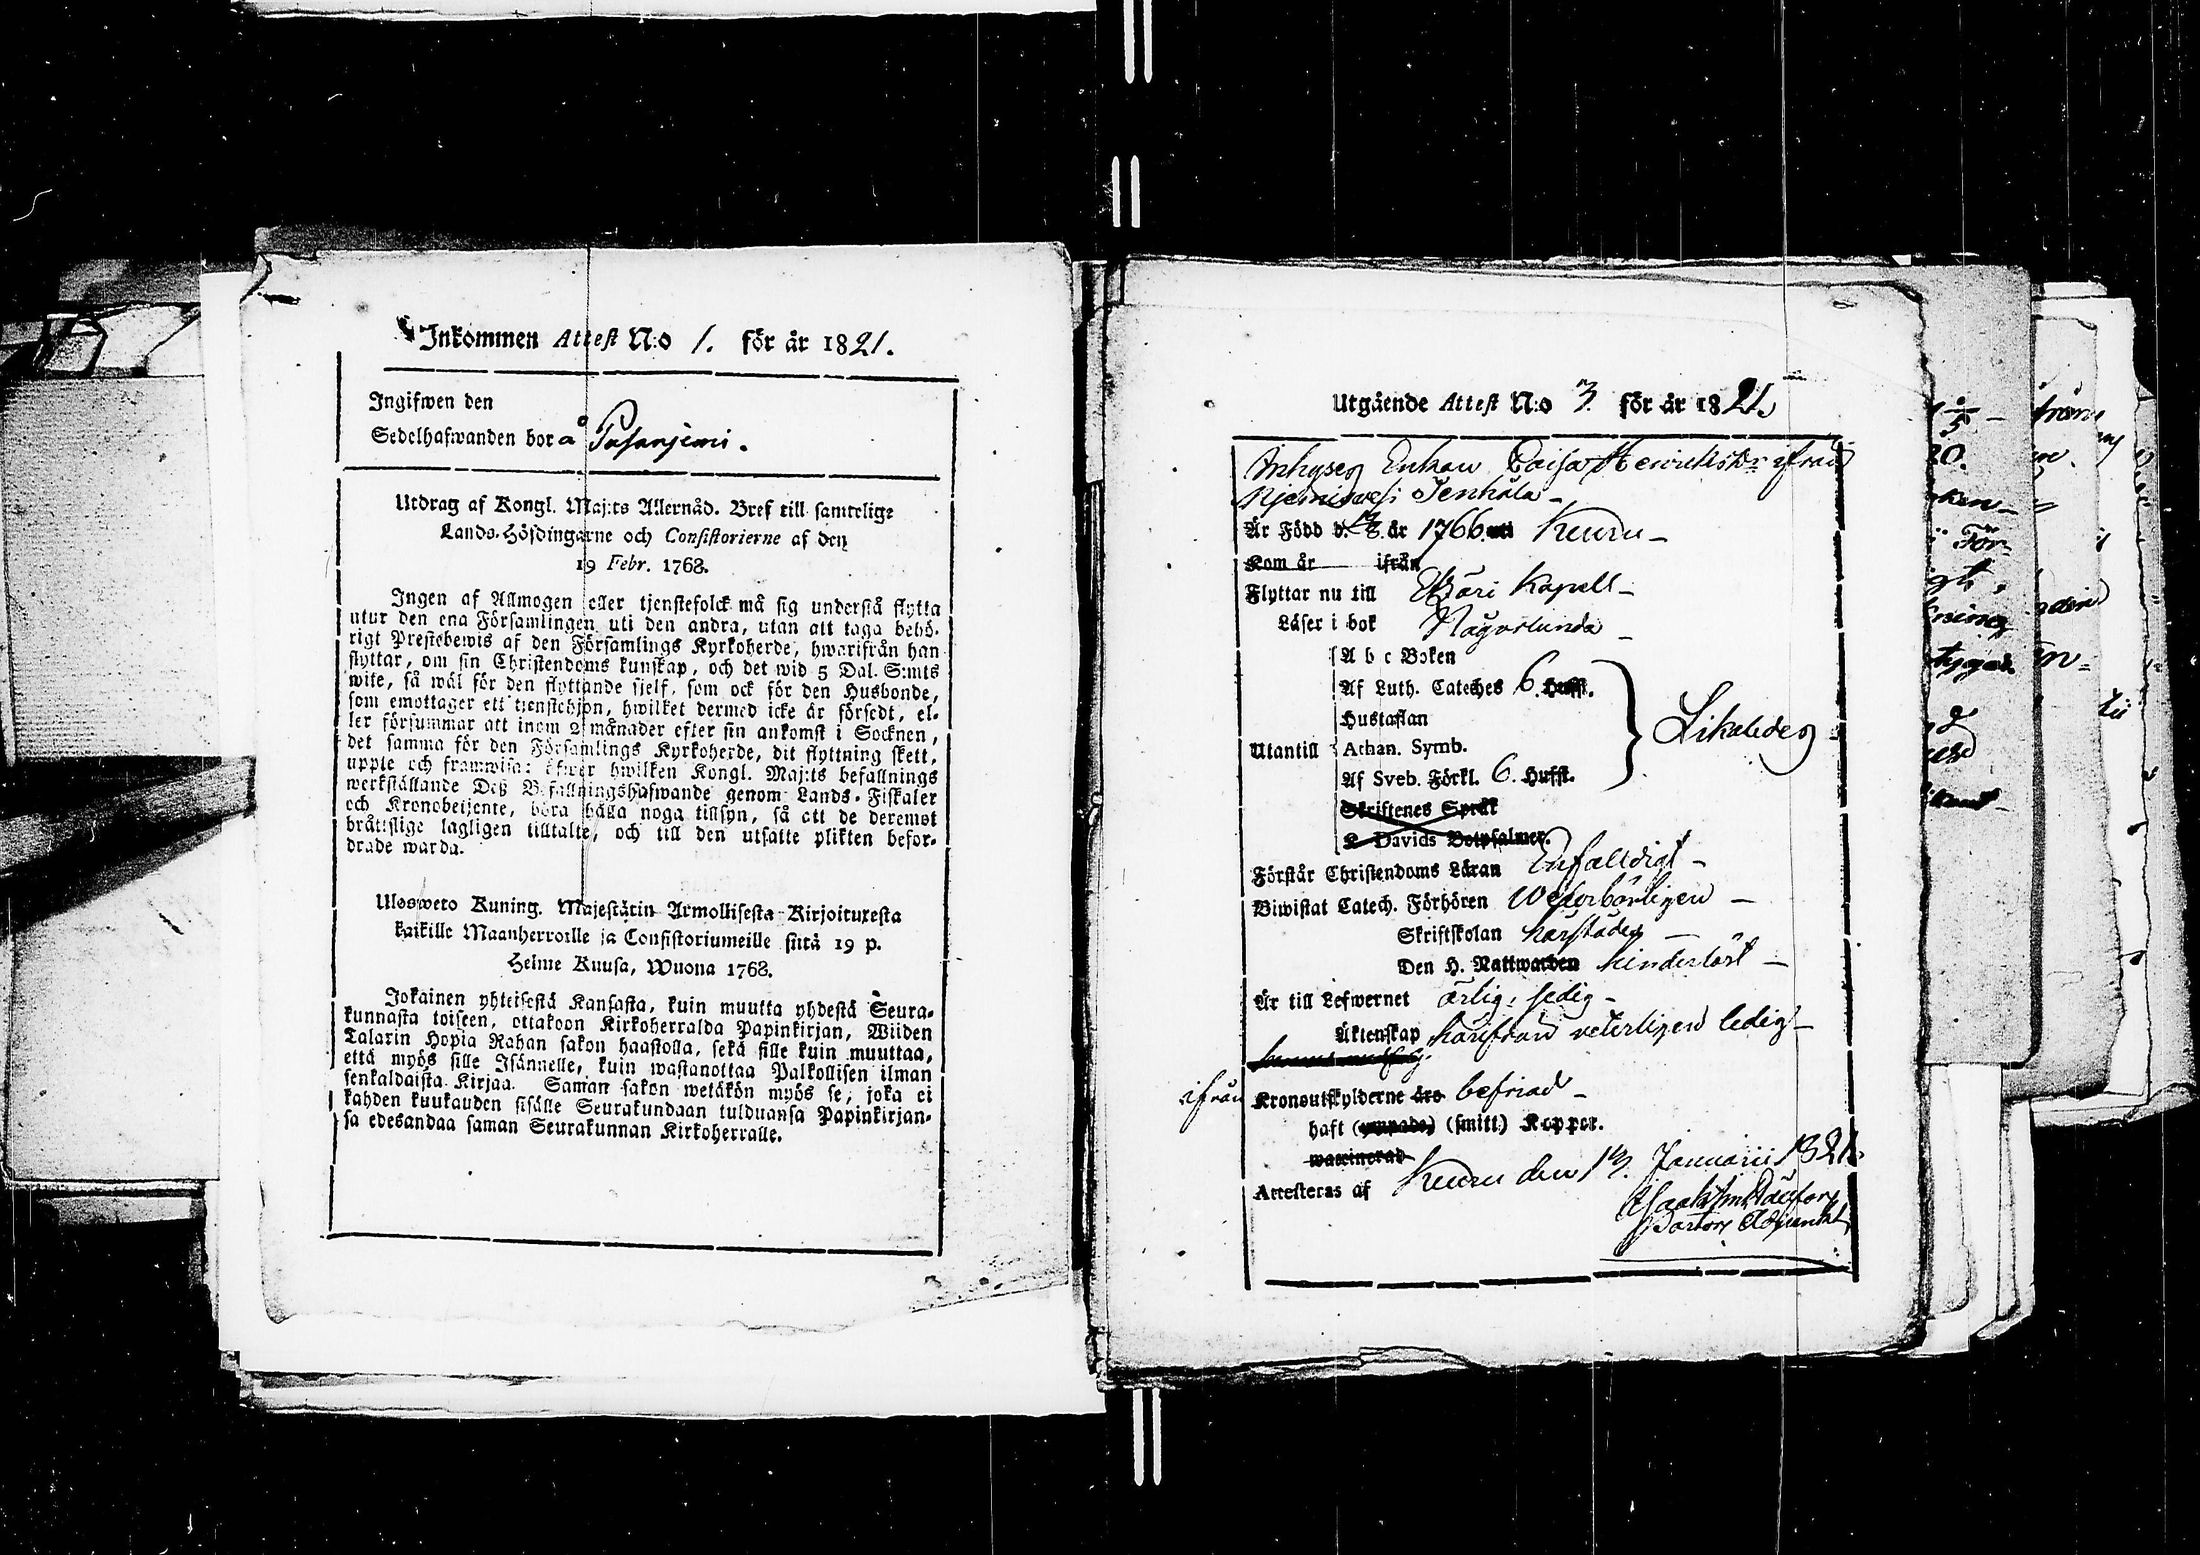 Inkommen Attest N:o 1. för år 1821.
Ingifwen den
Sedelhafwanden bor å Pasanjemi.
Utdrag af Kongl. Maj:ts Allernåd. Bref till samtelige
Lands-Höfdingarne och Consistorierne af den
19 Febr. 1768.
Ingen af Allmogen eller tjenstefolck må sig understå flytta
utur den ena Församlingen uti den andra, utan att taga behö-
rigt Prestebewis af den Församlings Kyrkoherde, hwarifrån han
flyttar, om sin Christendoms kunskap, och det wid 5 Dal. S:mts
wite, så wäl för den flyttande sjelf, som ock för den Husbonde,
som emottager ett tjenstehjon, hwilket dermed icke är försedt, el-
ler försummar att inom 2 månader efter sin ankomst i Socknen,
det samma för den Församlings Kyrkoherde, dit flyttning skett,
uppte och framwisa: öfwer hwilken Kongl. Maj:ts befallnings
werkställande Deß Befallningshafwande genom Lands-Fiskaler
och Kronobetjente, böra hålla noga tillsyn, så att de deremot
bråttslige lagligen tilltalte, och till den utsatte plikten befor-
drade warda.
Ulosweto Kuning. Majestätin Armollisesta Kirjoituxesta
kaikille Maanherroille ja Consistoriumeille siitä 19 p.
Helme Kuusa, Wuona 1768.
Jokainen yhteisestä Kansasta, kuin muutta yhdestä Seura-
kunnasta toiseen, ottakoon Kirkoherralda Papinkirjan, Wiiden
Talarin Hopia Rahan sakon haastolla, sekä sille kuin muuttaa,
että myös sille Isännelle, kuin wastanottaa Palkollisen ilman
senkaldaista Kirjaa. Saman sakon wetäkön myös se, joka ei
kahden kuukauden sisälle Seurakundaan tulduansa Papinkirjan-
sa edesandaa saman Seurakunnan Kirkoherralle.
Utgående Attest N:o 3. för år 1821.
Inhyses Enkan Caisa Henriksdr ifrån
Njemisvesi Tenhola
Är Född d. år 1766 uti Keuru
Kom år ifrån
Flyttar nu till Etzäri Kapell
Läser i bok Någorlunda
A b c Boken
Af Luth. Cateches 6. Hufst.
Hustaflan
Utantill Athan. Symb. Likaledes
Af Sveb. Förkl. 6. Hufst.
Skriftenes Språk
K. Davids Botpsalmer.
Förstår Christendoms Läran Enfalldigt
Biwistat Catech. Förhören Wederbörligen
Skriftskolan härstädes
Den H. Nattwarden hinderlöst
Är till Lefwernet ärlig, sedig
Äktenskap härifrån veterligen ledig
ifrån Kronoutskylderne äro befriad
haft (ympade) (smitt) Koppor.
waccinerad
Attesteras af Keuru den 13. Januarii 1821.
Pastors Adjunkt